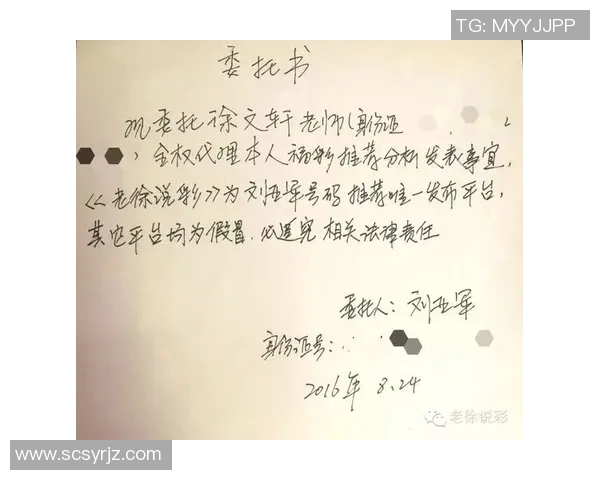 TG: MYYJJPP
委托书
现委托徐文轩老师(身份证
)全权代理本人福彩推荐分析发表事宜,
《老徐说彩》为刘亚军号码推荐唯一发布平台,
其它平台均为假冒.必追究相关法律责任
委托人:刘亚军
身份证号:
2016年 8.24
老徐说彩
www.scsyrjz.com